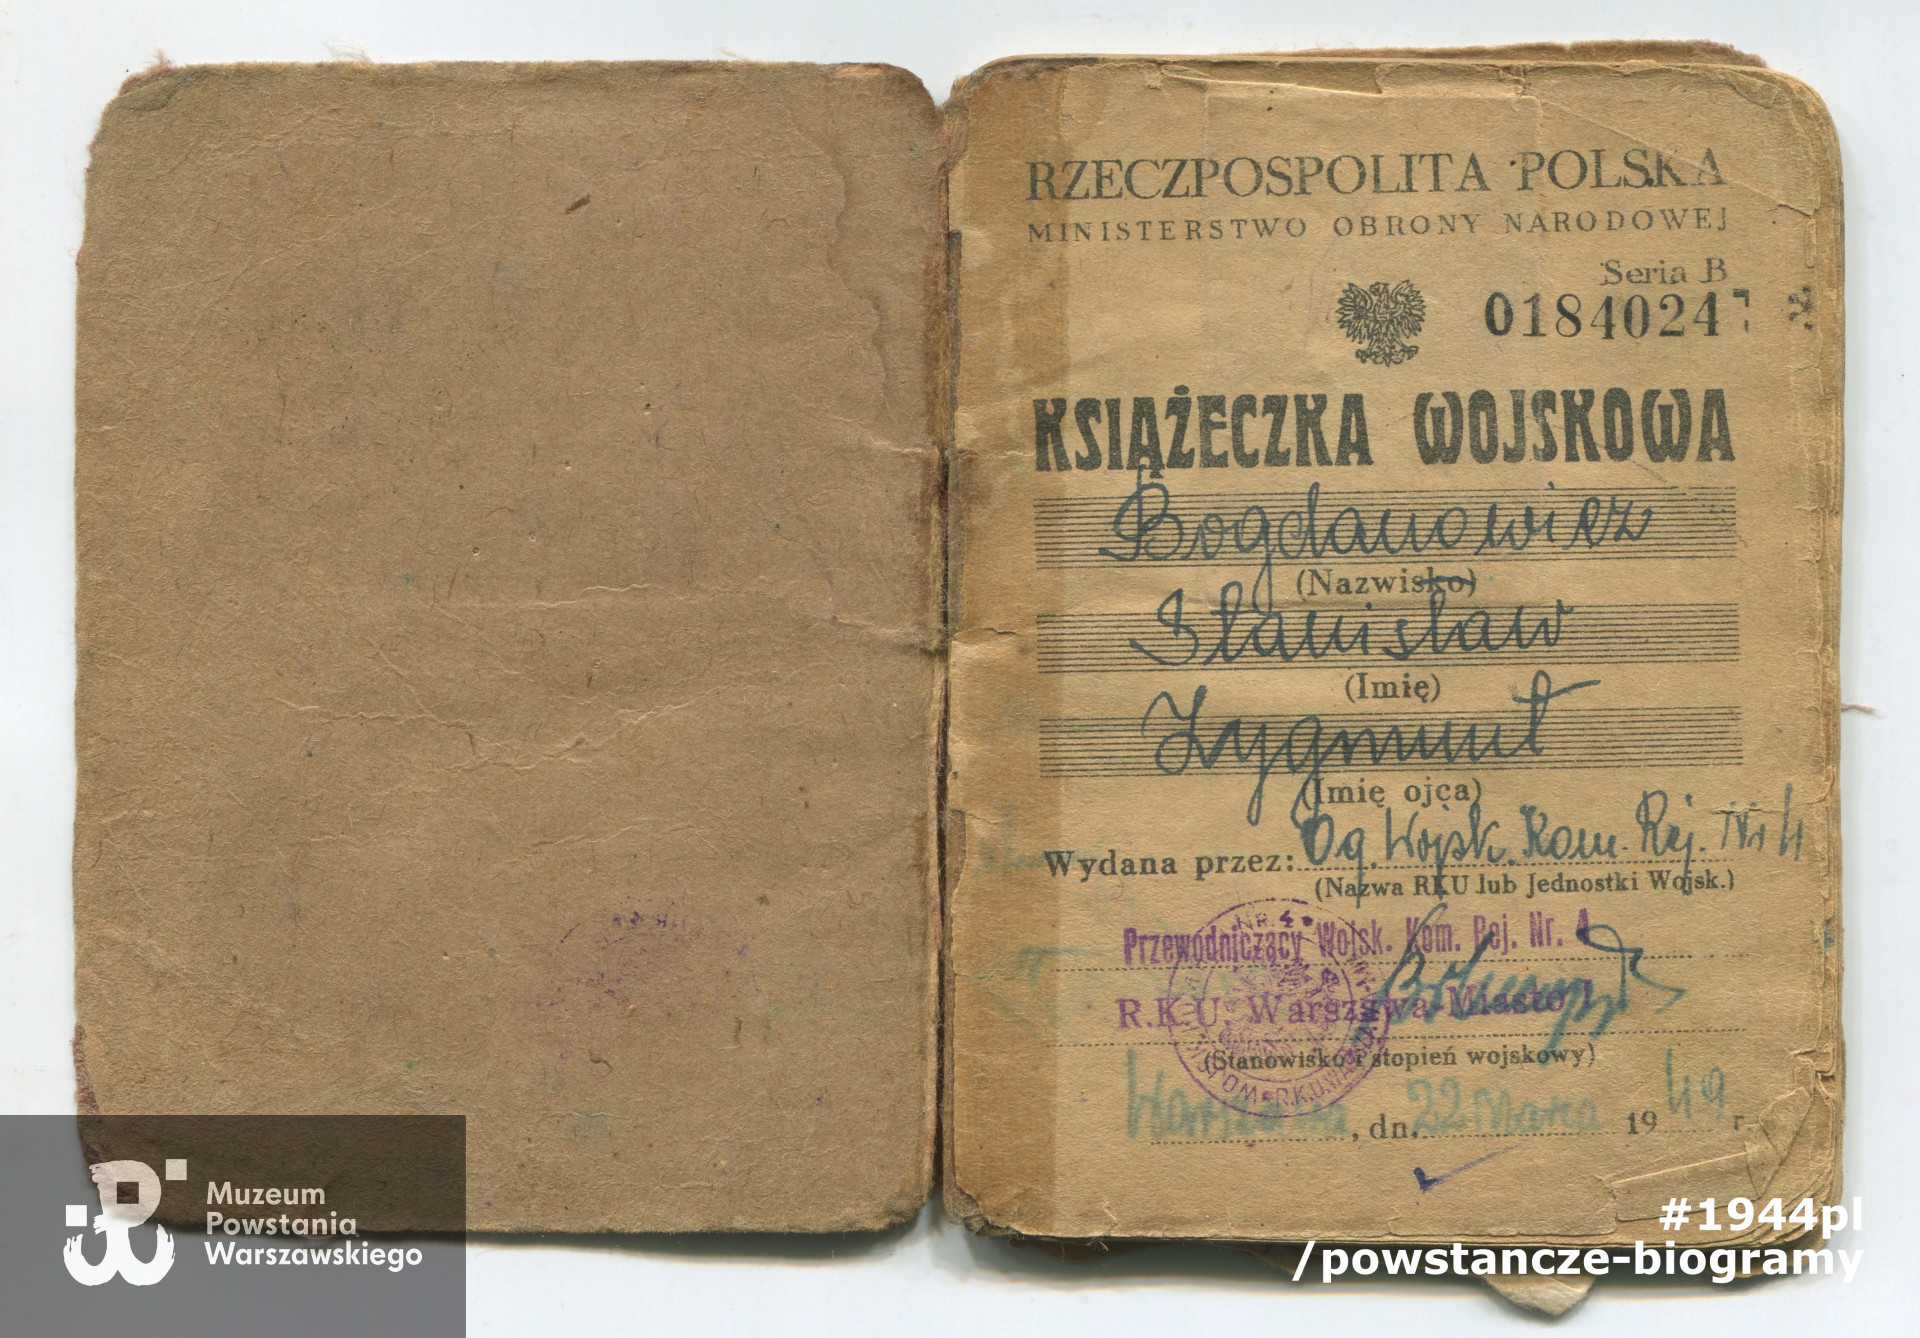 RZECZPOSPOLITA POLSKA
MINISTERSTWO OBRONY NARODOWEJ
Seria B
0184024
KSIĄŻECZKA WOJSKOWA
Bogdanowicz
(Nazwisko)
Stanisław
(Imię)
Zygmunt
(Imię ojca)
Wydana przez: Og. Wojsk. Kom. Rej. Nr 4
(Nazwa RKU lub Jednostki Wojsk.)
Przewodniczący Wojsk. Kom. Rej. Nr. 4
R.K.U. Warszawa-Miasto I
(Stanowisko i stopień wojskowy)
Warszawa, dn. 22 marca 1949 r.
NR. 4
Muzeum
Powstania
Warszawskiego
#1944pl
/powstancze-biogramy